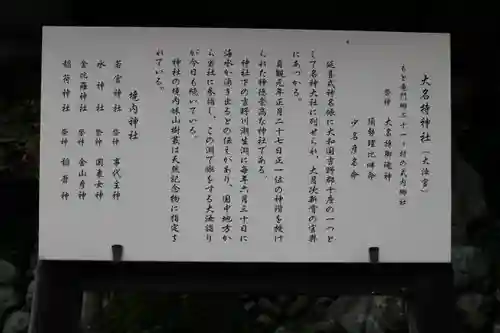 大名持神社(大汝宮)
もと竜門郷三十一ヶ村の氏内神社
祭神 大名持御魂神
須勢理比咩命
少名彦名命
延喜式神名帳に大和国吉野郡十座の一つと
して名神大社に列せられ、大月次新嘗の官幣
にあつかる。
貞観元年正月二十七日正一位の神階を授け
られた神徳豪高な神社である。
神社下の吉野川潮生淵に毎年六月三十日に
海水か湧き出るとの伝えがあり、国中地方か
ら当社に参詣し、この淵で禊をする大汝詣り
が今日も続いている。
神社の境内妹山樹叢は天然記念物に指定さ
れている。
境内神社
若宮神社 祭神 事代主神
水神社 祭神 国東女神
金比羅神社 祭神 金山彦神
稲荷神社 祭神 稲荷神